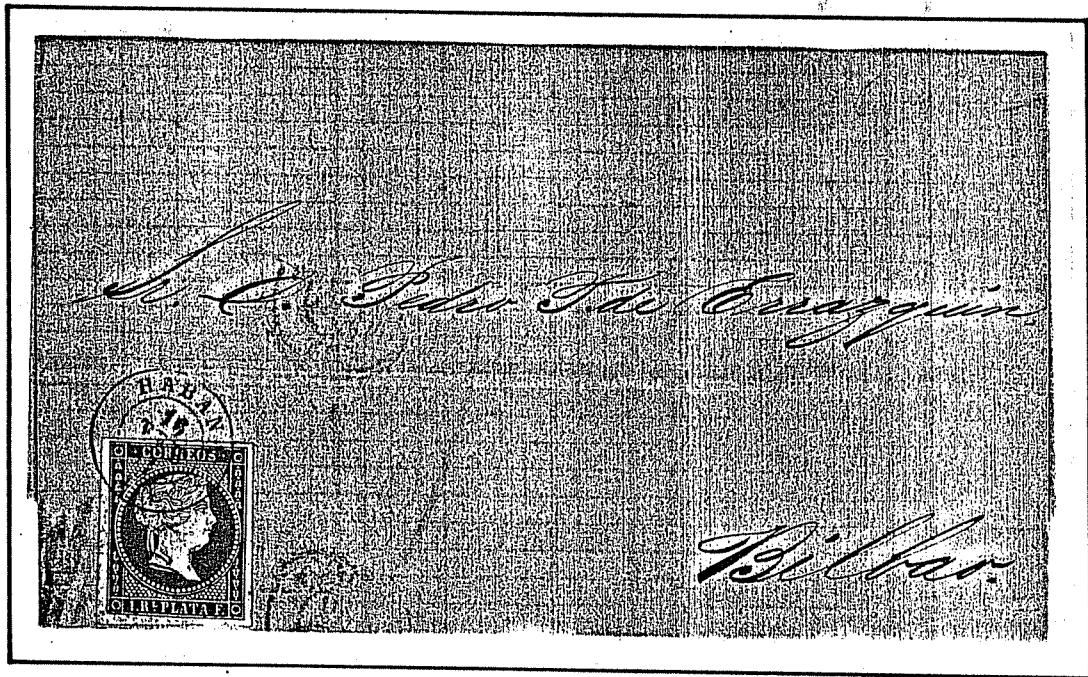 Sr. D. Pedro T. de Errazquin.
HABAN
16
CORREOS
1 R. PLATA F.
Bilbao.